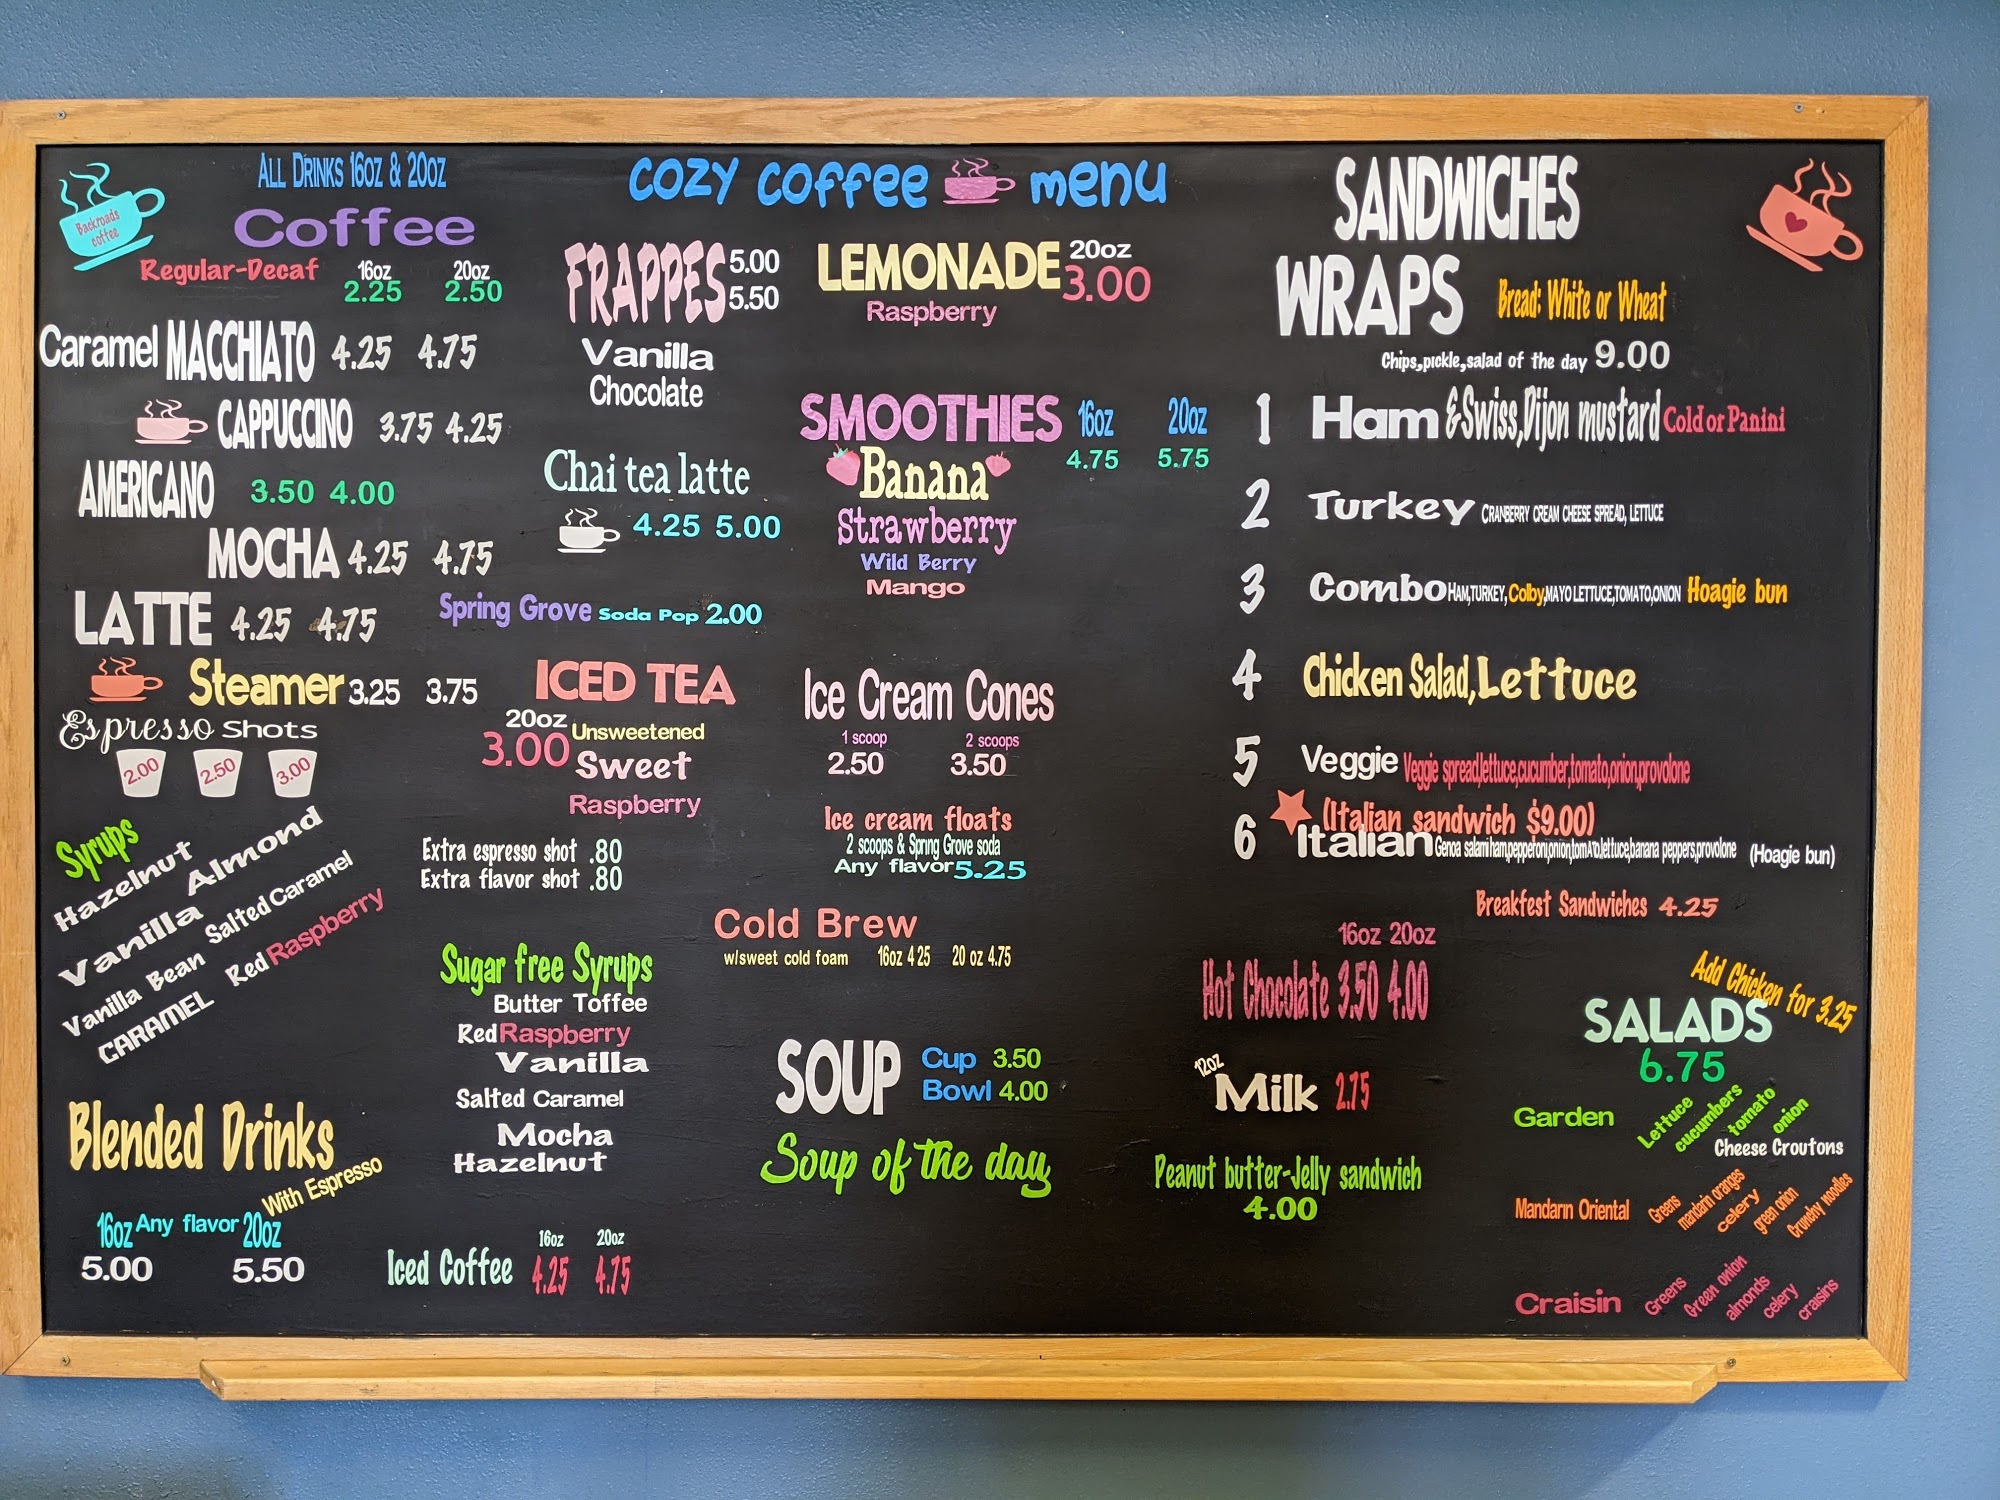 Backroads
coffee
ALL DRINKS 16oz & 20oz
Coffee
Regular-Decaf 16oz 20oz
2.25 2.50
Caramel MACCHIATO 4.25 4.75
CAPPUCCINO 3.75 4.25
AMERICANO 3.50 4.00
MOCHA 4.25 4.75
LATTE 4.25 4.75
Steamer 3.25 3.75
Espresso Shots
2.00 2.50 3.00
Syrups
Hazelnut
Vanilla Almond
Vanilla Bean Salted Caramel
CARAMEL Red Raspberry
Blended Drinks
With Espresso
16oz Any flavor 20oz
5.00 5.50
cozy coffee menu
FRAPPES 5.00
5.50
Vanilla
Chocolate
Chai tea latte
4.25 5.00
Spring Grove Soda Pop 2.00
ICED TEA
20oz Unsweetened
3.00 Sweet
Raspberry
Extra espresso shot .80
Extra flavor shot .80
Sugar free Syrups
Butter Toffee
Red Raspberry
Vanilla
Salted Caramel
Mocha
Hazelnut
Iced Coffee 16oz 20oz
4.25 4.75
LEMONADE 20oz
3.00
Raspberry
SMOOTHIES 16oz 20oz
4.75 5.75
Banana
Strawberry
Wild Berry
Mango
Ice Cream Cones
1 scoop 2 scoops
2.50 3.50
Ice cream floats
2 scoops & Spring Grove soda
Any flavor 5.25
Cold Brew
w/sweet cold foam 16oz 4 25 20 oz 4.75
SOUP Cup 3.50
Bowl 4.00
Soup of the day
SANDWICHES
WRAPS Bread: White or Wheat
Chips,pickle,salad of the day 9.00
1 Ham &Swiss,Dijon mustard Cold or Panini
2 Turkey CRANBERRY CREAM CHEESE SPREAD, LETTUCE
3 Combo HAM,TURKEY, Colby,MAYO LETTUCE,TOMATO,ONION Hoagie bun
4 Chicken Salad,Lettuce
5 Veggie Veggie spread,lettuce,cucumber,tomato,onion,provolone
(Italian sandwich $9.00)
6 Italian Genoa salami,ham,pepperoni,onion,tomAto,lettuce,banana peppers,provolone (Hoagie bun)
Breakfest Sandwiches 4.25
16oz 20oz
Hot Chocolate 3.50 4.00
12oz
Milk 2.75
Peanut butter-Jelly sandwich
4.00
Add Chicken for 3.25
SALADS
6.75
Garden Lettuce cucumbers tomato onion
Cheese Croutons
Mandarin Oriental Greens mandarin oranges celery green onion Crunchy noodles
Craisin Greens Green onion almonds celery craisins